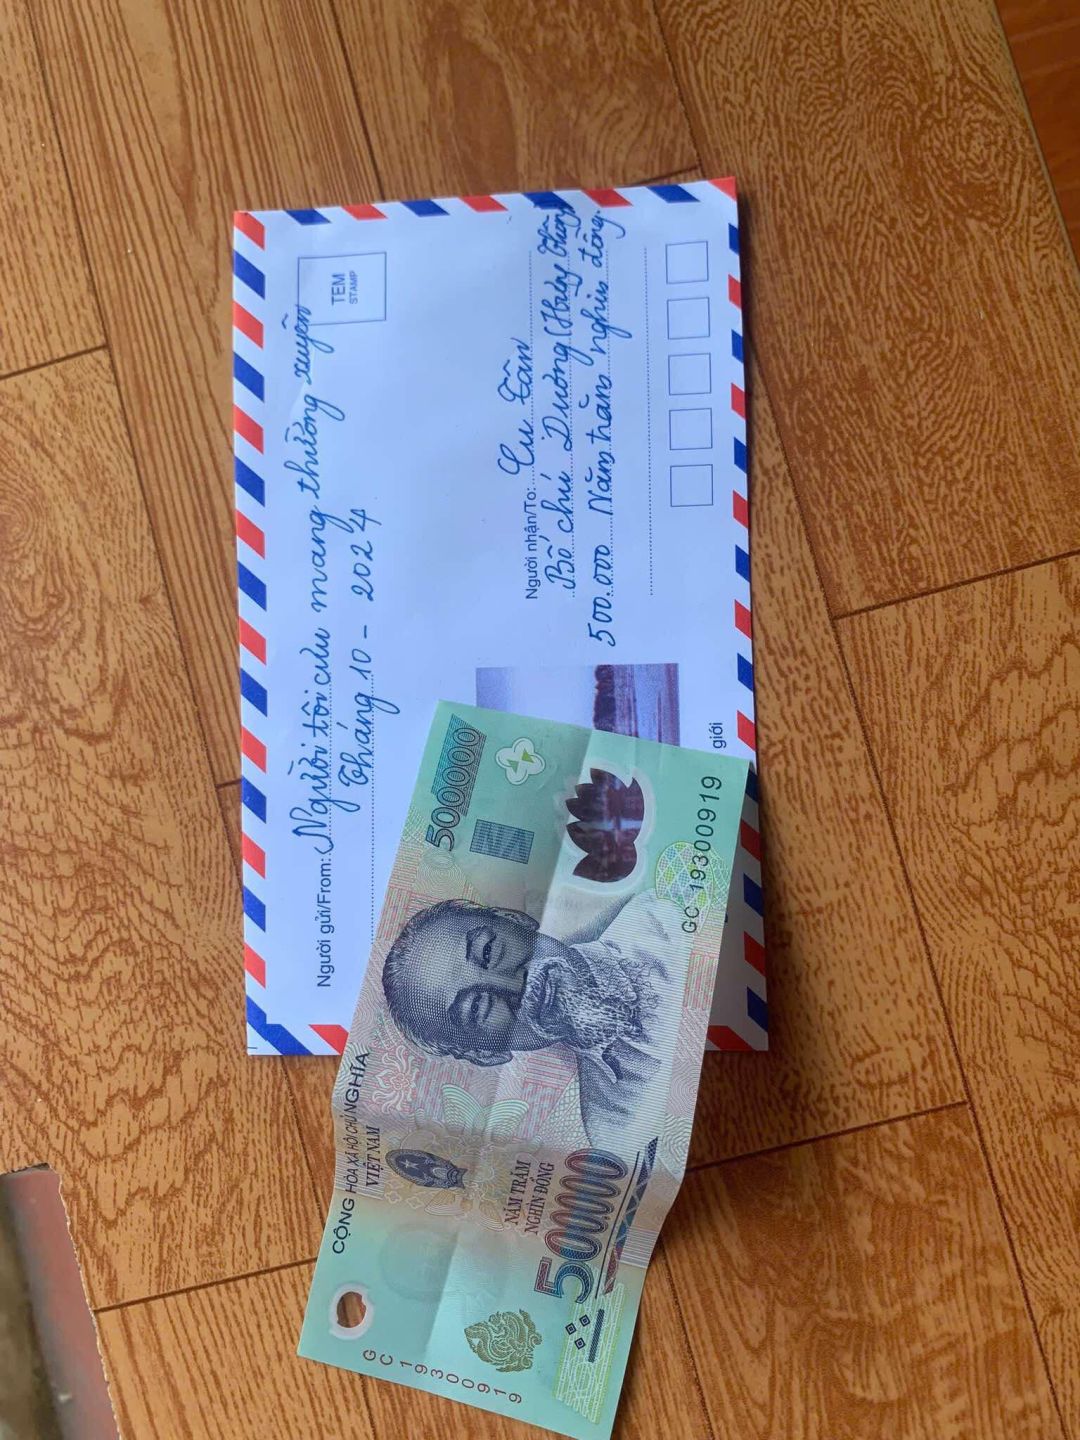 Người gửi/From: Người tôi cưu mang thường xuyên
Tháng 10 - 2024
TEM
STAMP
Người nhận/To: Cu Tân
Bố chú Dương (Hưng Thịnh)
500.000 Năm trăm nghìn đồng.
giới
CỘNG HÒA XÃ HỘI CHỦ NGHĨA
VIỆT NAM
500000
NĂM TRĂM
NGHÌN ĐỒNG
500000
GC 19300919
GC 19300919